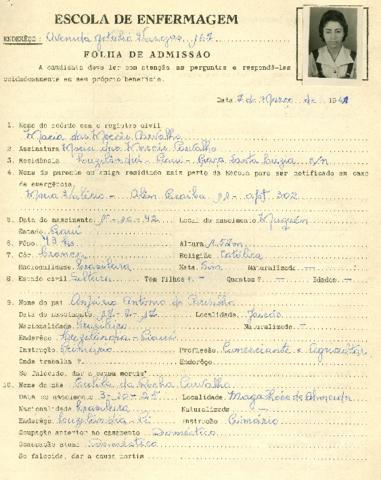 ESCOLA DE ENFERMAGEM
ENDERÊÇO: Avenida Getúlio Vargas,
FOLHA DE ADMISSÃO
A candidata deve ler com atenção as perguntas e respondê-las
cuidadosamente em seu próprio benefício.
Data 7 de Março de
1. Nome de acôrdo com o registro civil
Maria das Mercês Carvalho
2. Assinatura Maria das Mercês Carvalho
3. Residência Luzilândia - Piauí - Praça Santa Luzia s/n
4. Nome do parente ou amigo residindo mais perto da Escola para ser notificado em caso
de emergência.
Maria - apt 302
5. Data do nascimento Local do nascimento
Estado Piauí
6. Pêso 43 Ks. Altura
7. Côr branca Religião Católica
Nacionalidade brasileira Nata Sim Naturalizada —
8. Estado civil solteira Tem filhos? - Quantos? — Idades —
9. Nome do pai Antônio de
Data do nascimento Localidade
Nacionalidade brasileiro Naturalizado -
Enderêço Luzilândia - Piauí
Instrução Primário Profissão Comerciante e Agricultor
Onde trabalha? Enderêço:
Se falecido, dar a causa mortis
10. Nome da mãe da Rocha Carvalho
Data do nascimento 3-10-25 Localidade
Nacionalidade brasileira Naturalizada —
Enderêço Luzilândia Pi Instrução Primário
Ocupação anterior ao casamento Doméstica
Ocupação atual Doméstica
Se falecida, dar a causa mortis